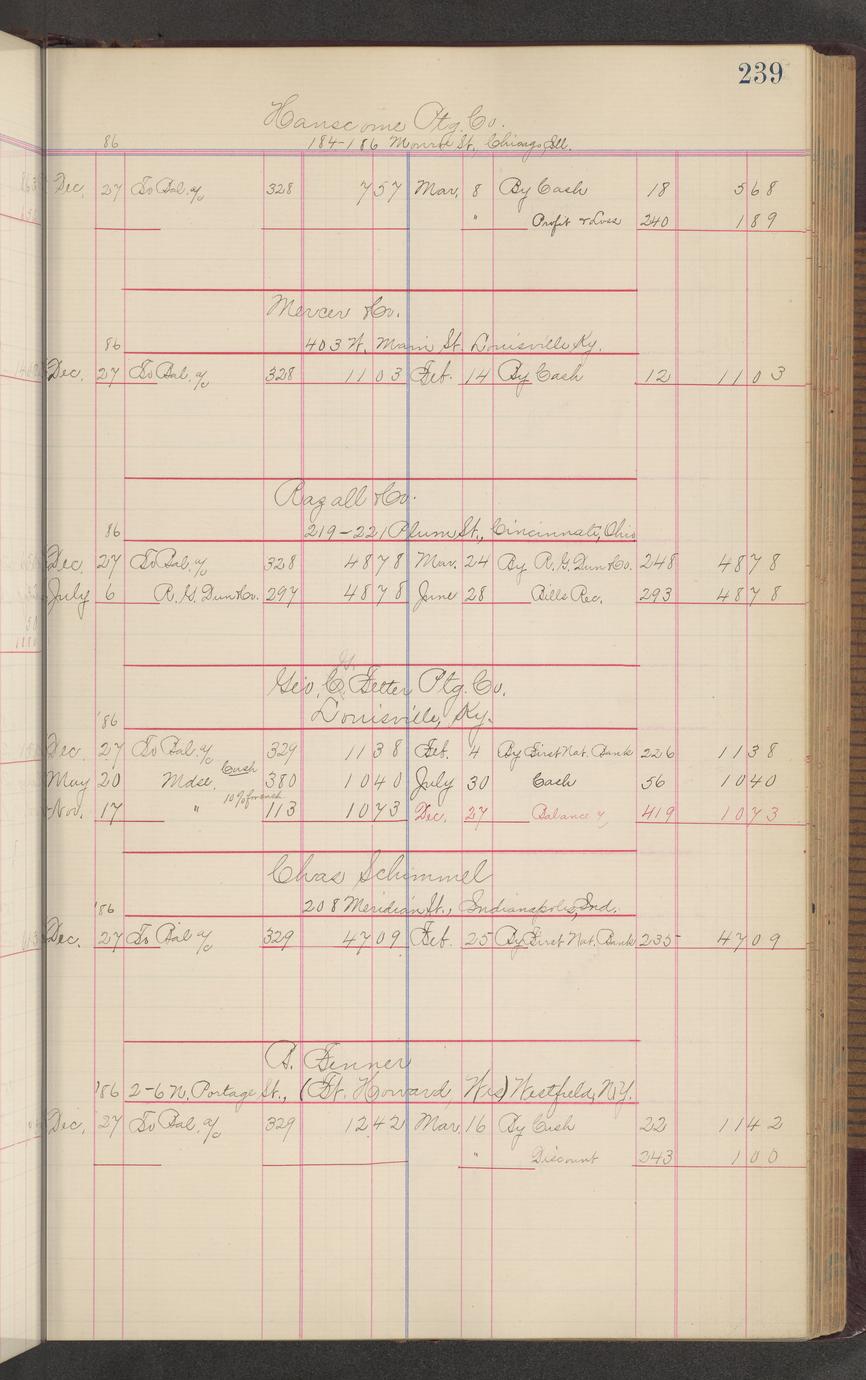 239
Hanscome Ptg. Co.
86 184-186 Monroe St., Chicago, Ill.
Dec. 27 To Bal. a/c 328 7 57 Mar. 8 By Cash 18 5 68
" Profit & Loss 240 1 89
Mercer & Co.
86 403 W. Main St. Louisville Ky.
Dec. 27 To Bal. a/c 328 11 03 Feb. 14 By Cash 12 11 03
Razall & Co.
86 219-221 Plum St., Cincinnati, Ohio
Dec. 27 To Bal. a/c 328 48 78 Mar. 24 By R. G. Dun & Co. 248 48 78
July 6 R. G. Dun & Co. 297 48 78 June 28 Bills Rec. 293 48 78
Geo. C. Fetter Ptg. Co.
'86 Louisville, Ky.
Dec. 27 To Bal. a/c 329 11 38 Feb. 4 By First Nat. Bank 226 11 38
May 20 Mdse. Cash 380 10 40 July 30 Cash 56 10 40
Nov. 17 " 10% 113 10 73 Dec. 27 Balance 419 10 73
Chas Schimmel
'86 208 Meridian St., Indianapolis, Ind.
Dec. 27 To Bal a/c 329 47 09 Feb. 25 By First Nat. Bank 235 47 09
B. Fenner
'86 2-6 N. Portage St., (Ft. Howard, Wis) Westfield, N.Y.
Dec. 27 To Bal. a/c 329 12 42 Mar. 16 By Cash 22 11 42
" Discount 243 1 00